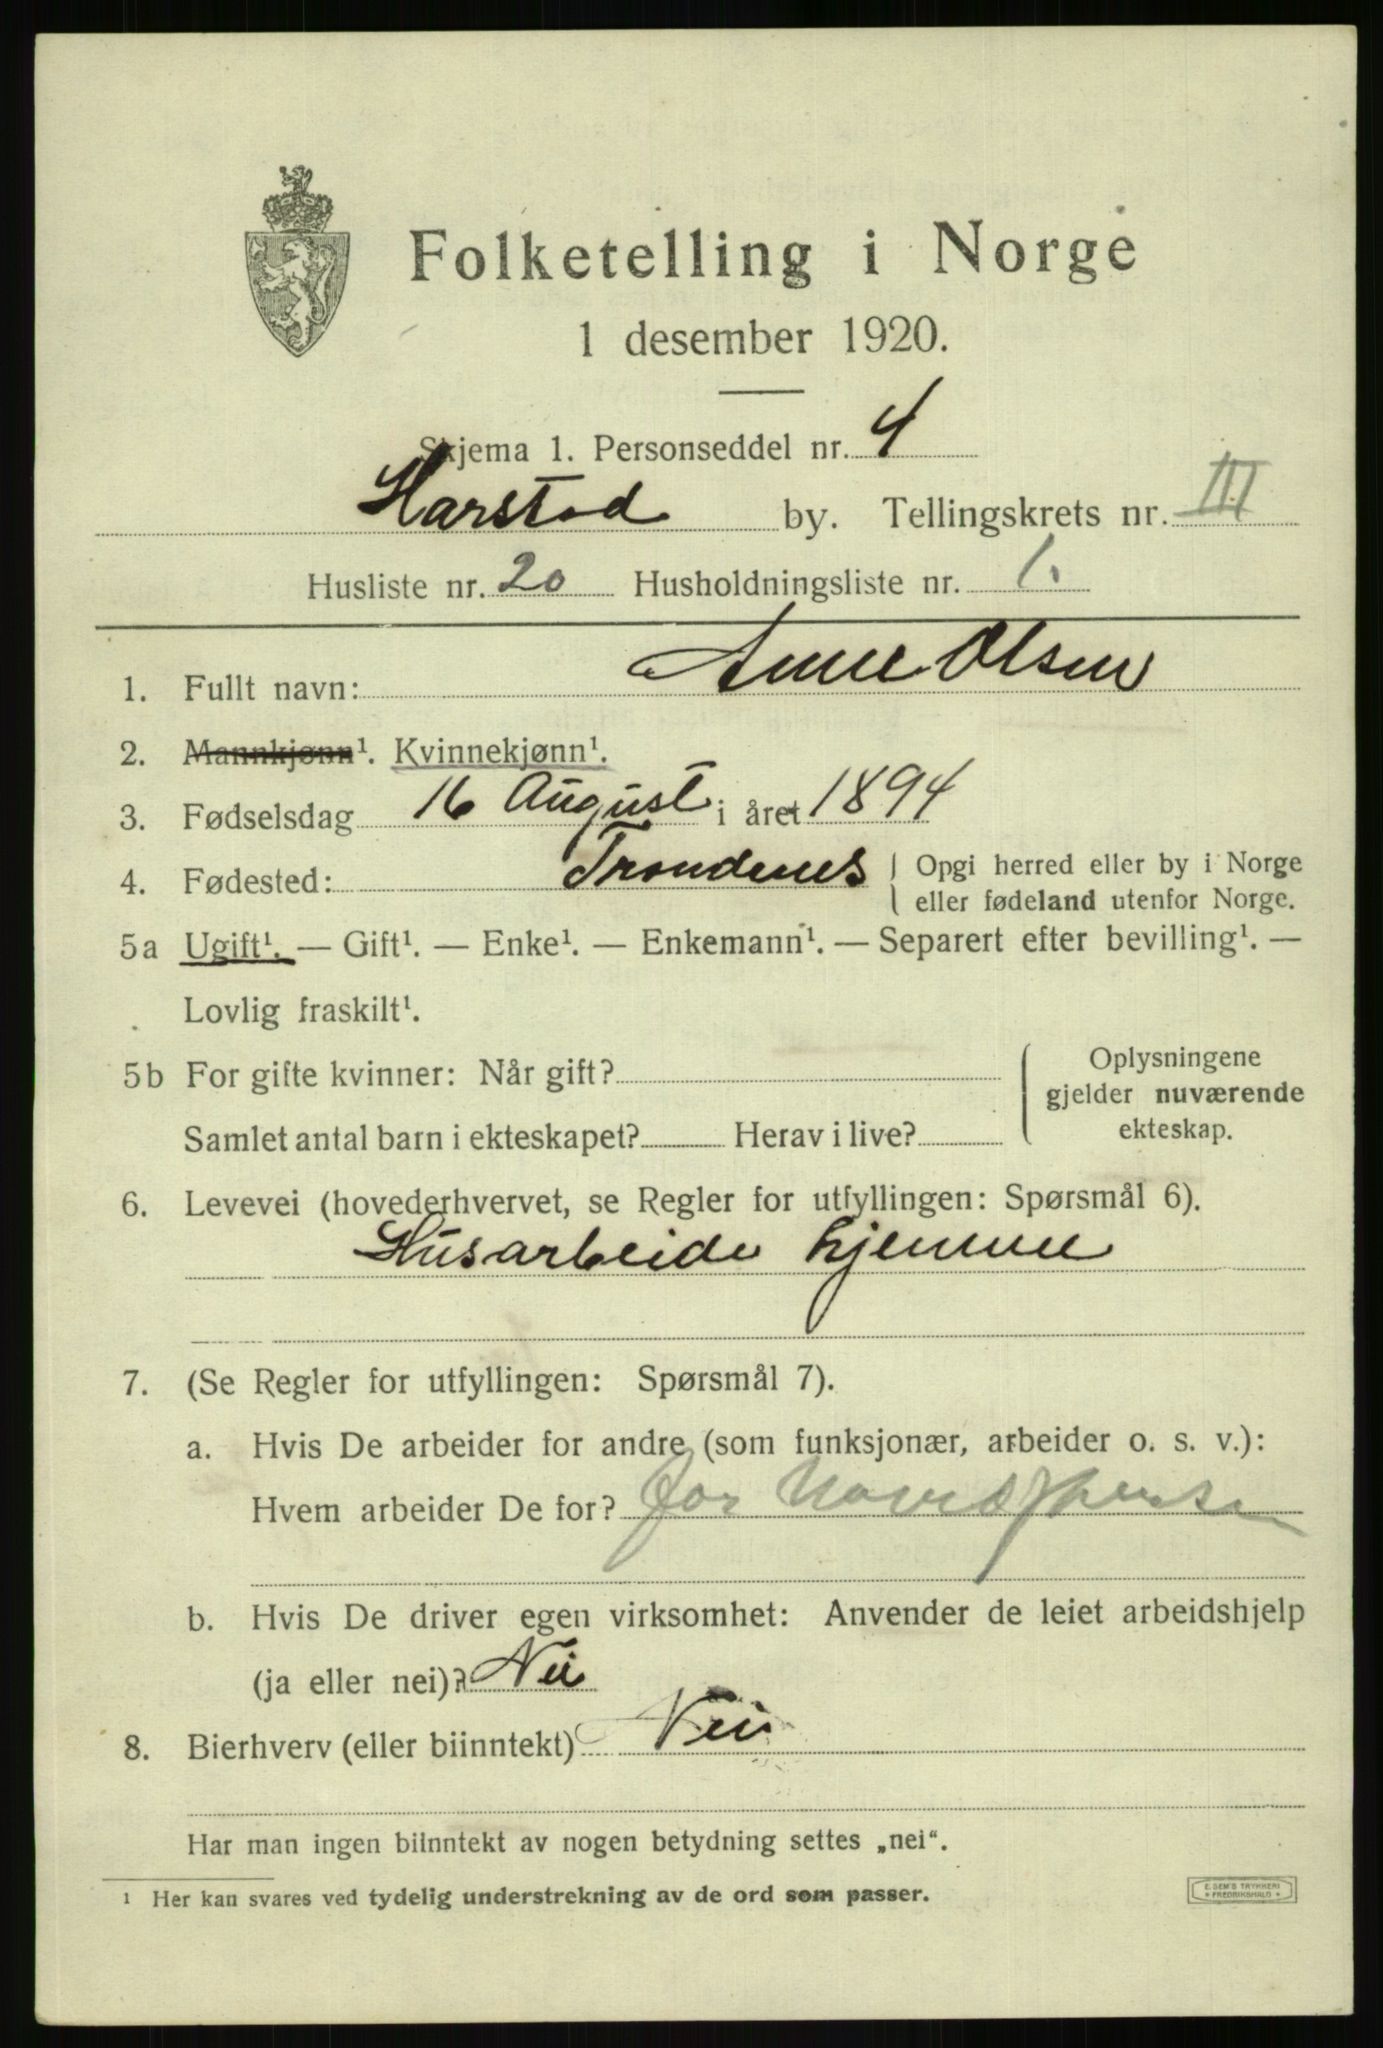 Folketelling i Norge
1 desember 1920.
Skjema 1. Personseddel nr. 4
Harstad by. Tellingskrets nr. III
Husliste nr. 20 Husholdningsliste nr. 1.
1. Fullt navn: Anne Olsen
2. Mannkjønn¹. Kvinnekjønn¹.
3. Fødselsdag 16 August i året 1894
4. Fødested: Trondenes Opgi herred eller by i Norge
eller fødeland utenfor Norge.
5a Ugift¹. — Gift¹. — Enke¹. — Enkemann¹. — Separert efter bevilling¹. —
Lovlig fraskilt¹.
5b For gifte kvinner: Når gift?
Samlet antal barn i ekteskapet? Herav i live?
Oplysningene
gjelder nuværende
ekteskap.
6. Levevei (hovederhvervet, se Regler for utfyllingen: Spørsmål 6).
Husarbeide hjemme
7. (Se Regler for utfyllingen: Spørsmål 7).
a. Hvis De arbeider for andre (som funksjonær, arbeider o. s. v.):
Hvem arbeider De for? for
b. Hvis De driver egen virksomhet: Anvender de leiet arbeidshjelp
(ja eller nei)? Nei
8. Bierhverv (eller biinntekt) Nei
Har man ingen biinntekt av nogen betydning settes „nei“.
¹ Her kan svares ved tydelig understrekning av de ord som passer.
E. SEM'S TRYKKERI
FREDRIKSHALD